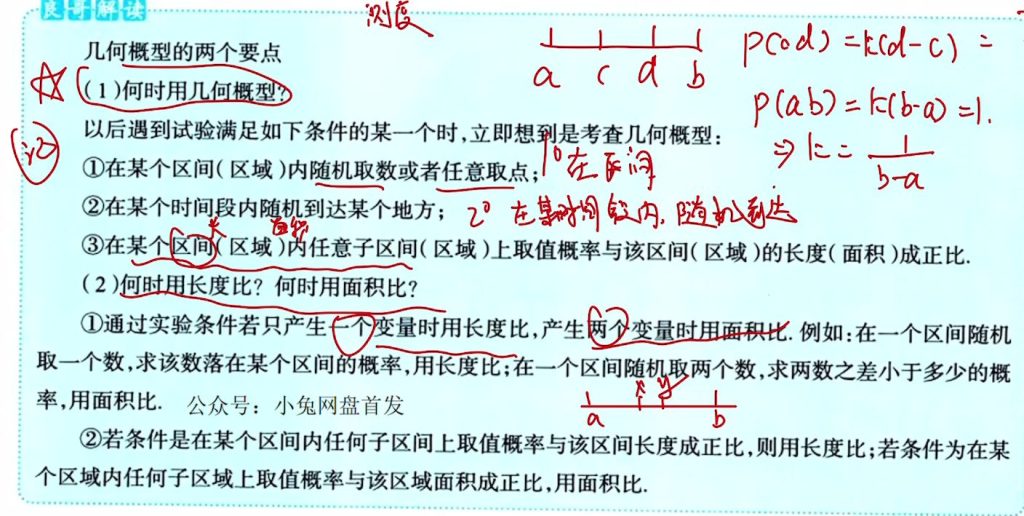 良哥解读
测度
几何概型的两个要点
a c d b
P(cd)=k(d-c)=
(1)何时用几何概型?
P(ab)=k(b-a)=1.
以后遇到试验满足如下条件的某一个时,立即想到是考查几何概型:
⇒ k = 1/(b-a)
①在某个区间(区域)内随机取数或者任意取点;
1° 在区间
②在某个时间段内随机到达某个地方;
2° 在某时间段内,随机到达
长 面积
③在某个区间(区域)内任意子区间(区域)上取值概率与该区间(区域)的长度(面积)成正比.
(2)何时用长度比? 何时用面积比?
①通过实验条件若只产生一个变量时用长度比,产生两个变量时用面积比. 例如:在一个区间随机
取一个数,求该数落在某个区间的概率,用长度比;在一个区间随机取两个数,求两数之差小于多少的概
率,用面积比.
公众号：小兔网盘首发
x y
a b
②若条件是在某个区间内任何子区间上取值概率与该区间长度成正比,则用长度比;若条件为在某
个区域内任何子区域上取值概率与该区域面积成正比,用面积比.